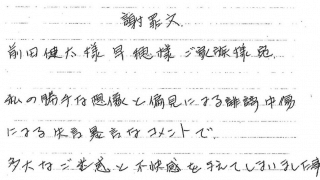 謝罪文
前田健太様早穂様ご親族様宛
私の勝手な想像と偏見による誹謗中傷
による次言暴言なコメントで、
多大なご迷惑と不快感を与えてしまいました事